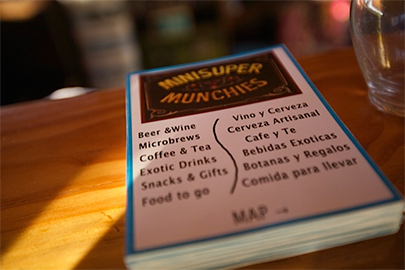 MINISUPER
MUNCHIES
Beer & Wine
Microbrews
Coffee & Tea
Exotic Drinks
Snacks & Gifts
Food to go
Vino y Cerveza
Cerveza Artisanal
Cafe y Te
Bebidas Exoticas
Botanas y Regalos
Comida para llevar
MAP →